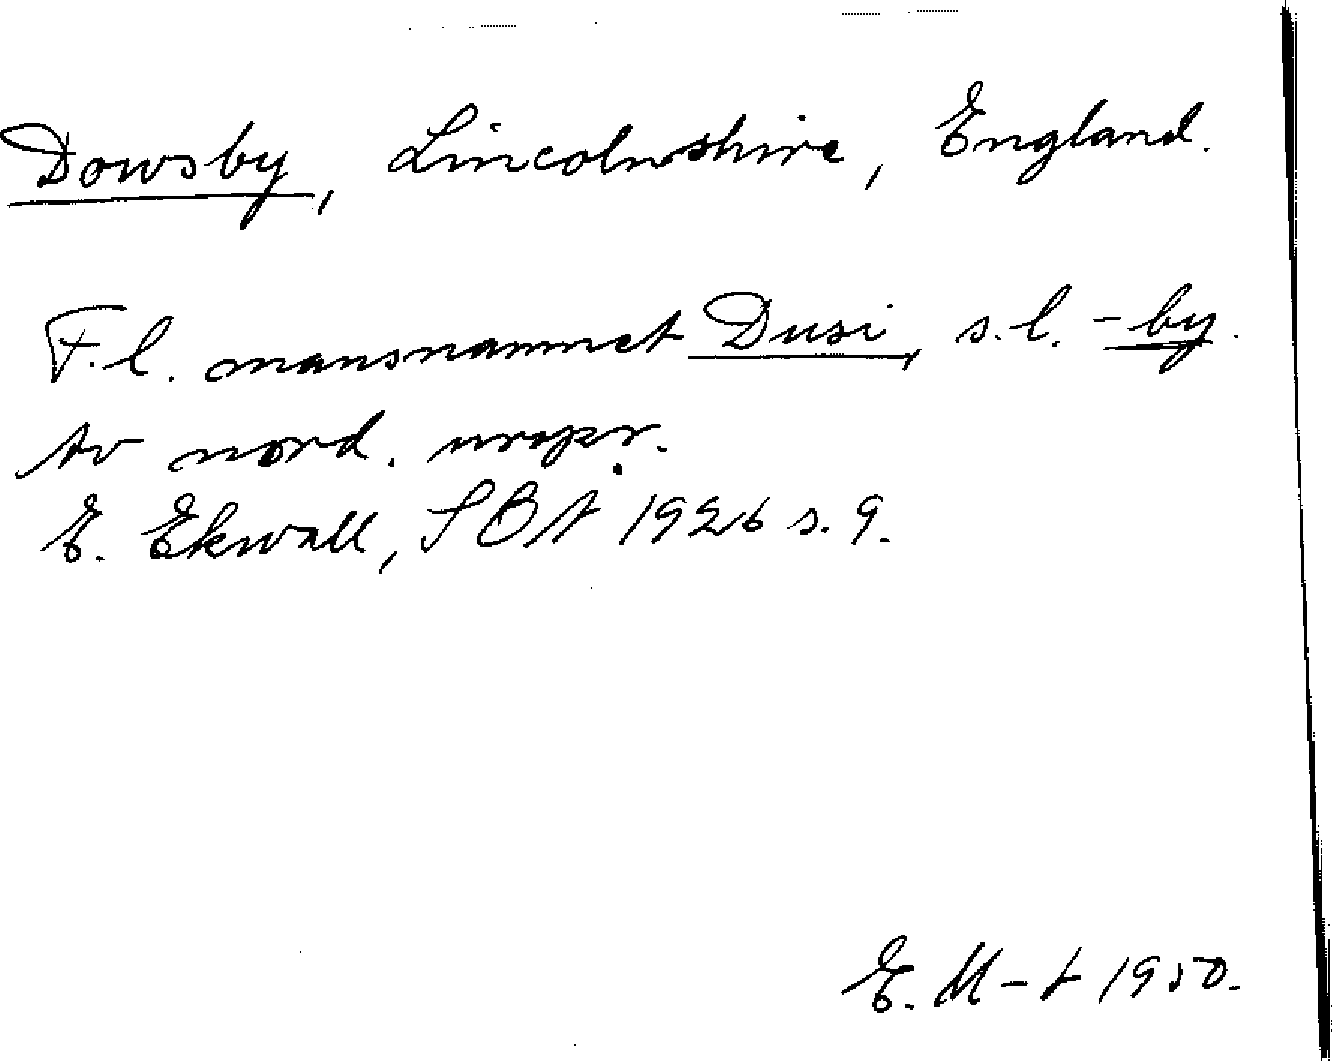 Dowsby, Lincolnshire, England.
F.l. mansnamnet Dusi, s.l. -by.
Av nord. urspr.
E. Ekwall, SBA 1926 s. 9.
E. M-t 1950.